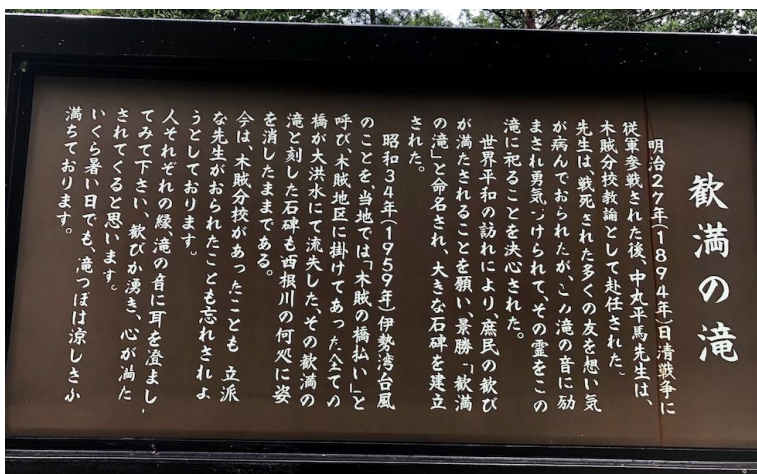 歓満の滝
明治27年(1894年)日清戦争に
従軍参戦された後、中丸平馬先生は、
木賊分校教諭として赴任された。
先生は、戦死された多くの友を想い気
が病んでおられたがこの滝の音に励
まされ勇気づけられて、その霊をこの
滝に祀ることを決心された。
世界平和の訪れにより、庶民の歓び
が満たされることを願い、景勝「歓満
の滝」と命名され、大きな石碑を建立
された。
昭和34年(1959年)伊勢湾台風
のことを、当地では「木賊の橋払い」と
呼び、木賊地区に掛けてあった全ての
橋が大洪水にて流失した、その歓満の
滝と刻した石碑も西根川の何処に姿
を消したままである。
今は、木賊分校があったことも 立派
な先生がおられたことも忘れされよ
うとしております。
人それぞれの縁、滝の音に耳を澄まし、
てみて下さい、歓びが湧き、心が満た
されてくると思います。
いくら暑い日でも、滝つぼは涼しさふ
満ちております。